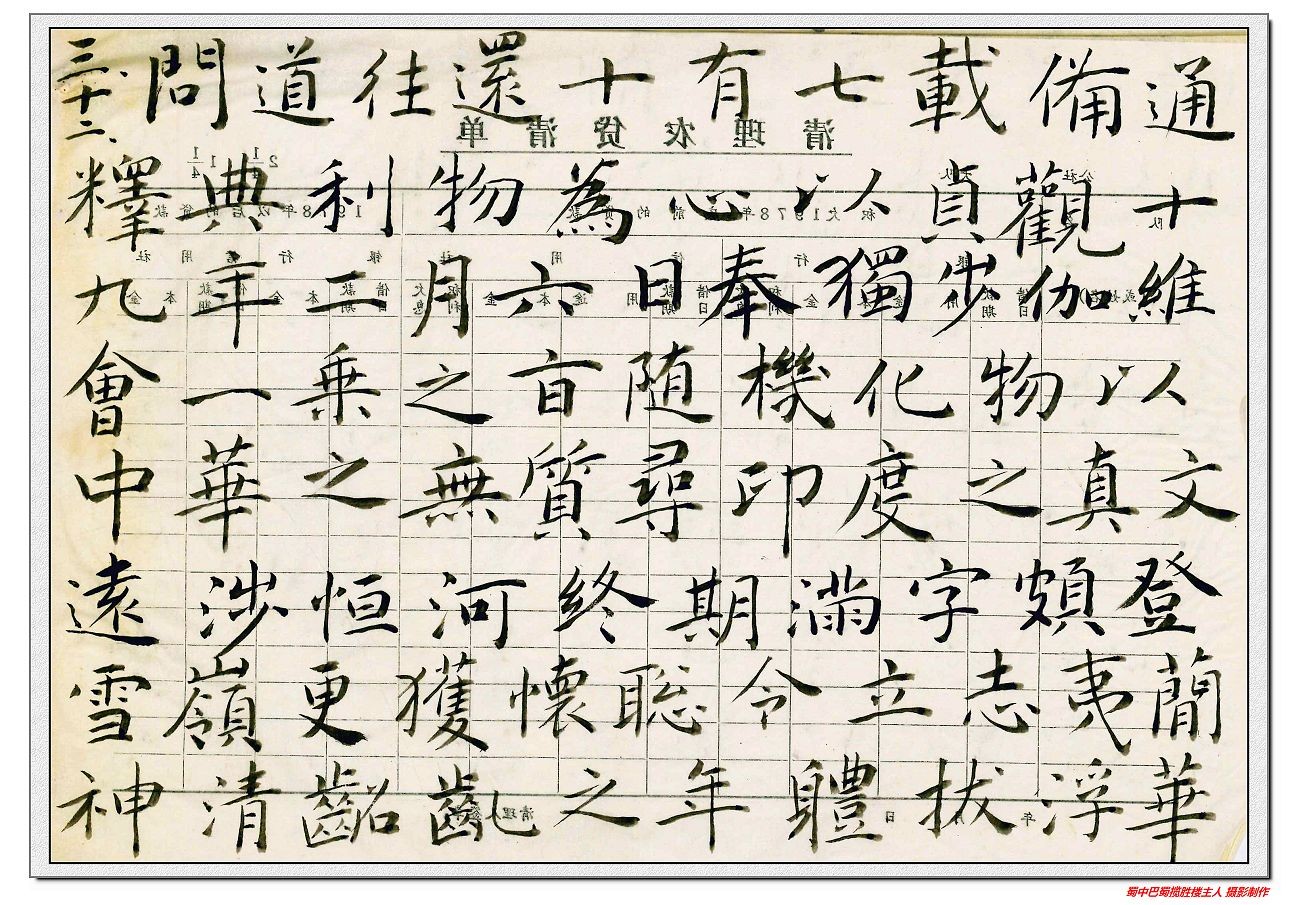 三十二、問道往還十有七載備通
清理农贷清单
釋典利物為心以貞觀十
九年二月六日奉獨步伽維
會一乗之旨随機化物以
中華之無質尋印度之真文
遠涉恒河終期滿字頗登
雪嶺更獲懷聡令立志夷簡
神清齠齔之年體拔浮華
蜀中巴蜀揽胜楼主人 摄影制作